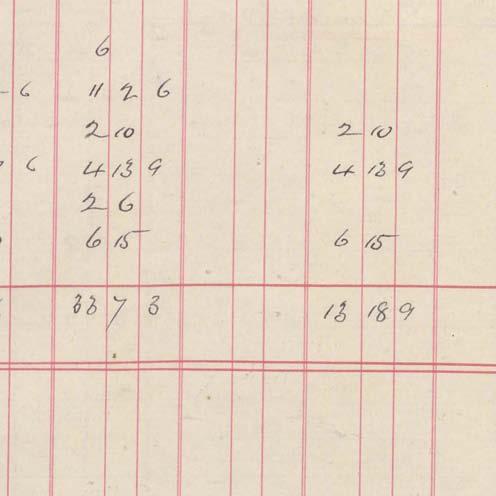 6
6 11 2 6
2 10 2 10
6 4 13 9 4 13 9
2 6
6 15 6 15
33 7 3 13 18 9